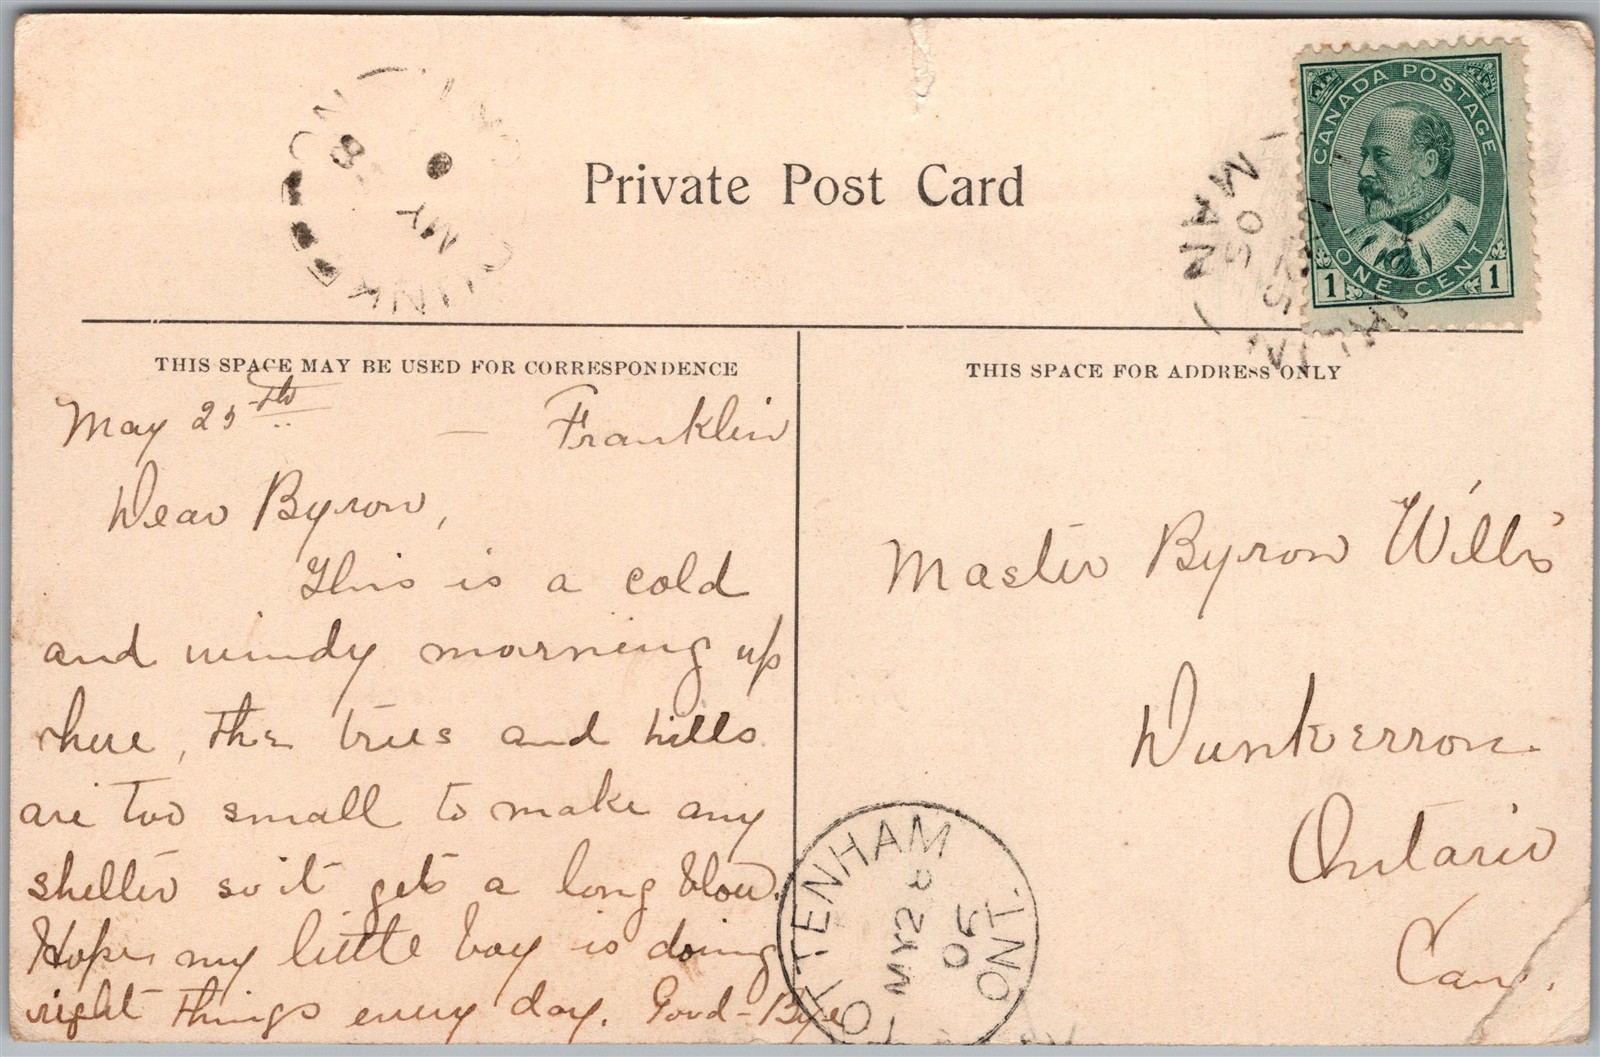 Private Post Card
CANADA POSTAGE
ONE CENT
1 1
MAN
05
MY
THIS SPACE MAY BE USED FOR CORRESPONDENCE
May 25th — Franklin
Dear Byron,
This is a cold
and windy morning up
here, the trees and hills
are too small to make any
shelter so it gets a long blow.
Hope my little boy is doing
right things every day. Good-Bye
THIS SPACE FOR ADDRESS ONLY
Master Byron Willis
Dunkerron.
Ontario
Can.
TOTTENHAM
MY 28
05
ONT.